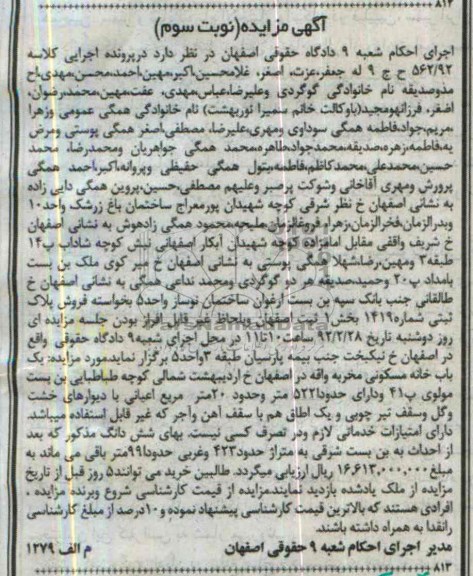 ۸۱۲
آگهی مزایده(نوبت سوم)
اجرای احکام شعبه ۹ دادگاه حقوقی اصفهان در نظر دارد درپرونده اجرایی کلاسه
۵۶۲/۹۲ ح ج ۹ له جعفر،عزت، اصغر، غلامحسین،اکبر،مهین،احمد،محسن،مهدی،اح
مذوصدیقه نام خانوادگی گوگردی وعلیرضا،عباس،مهدی، عفت،مهین،محمد،رضوان،
اصغر، فرزانهومجید(باوکالت خانم سمیرا نوربهشت) نام خانوادگی همگی عمومی وزهرا
،مریم،جواد،فاطمه همگی سوداوی ومهری،علیرضا، مصطفی،اصغر همگی پوستی ومرض
یه،فاطمه،زهره،صدیقه،محمدجواد،طاهره،محمد همگی جواهریان ومحمدرضا، محمد
حسین،محمدعلی،محمدکاظم،فاطمه،بتول همگی حفیظی وپروانه،اکبر،احمد همگی
پرورش ومهری آقاخانی وشوکت پرصبر وعلیهم مصطفی،حسین،پروین همگی دایی زاده
به نشانی اصفهان خ نظر شرقی کوچه شهیدان پورمعراج ساختمان باغ زرشک واحد۱۰
وبدرالزمان،فخرالزمان،زهرا، فروغ‌الزمان،ملیحه،محمود همگی زادهوش به نشانی اصفهان
خ شریف واقفی مقابل امامزاده کوچه شهیدان آبکار اصفهانی نبش کوچه شاداب پ۱۴
طبقه۳ ومهین،رضا،شهلا همگی پوستی به نشانی اصفهان خ امیر کوی ملک بن بست
بامداد پ۲۰ وحمید،صدیقه هر دو گوگردی ومحمد نداعی همگی به نشانی اصفهان خ
طالقانی جنب بانک سپه بن بست ارغوان ساختمان نوساز واحد۵ بخواسته فروش پلاک
ثبتی شماره۱۴۱۹ بخش ۱ ثبت اصفهان وبلحاظ غیر قابل افراز بودن جلسه مزایده ای
روز دوشنبه تاریخ ۹۲/۲/۲۸ ساعت۱۰تا۱۱ در محل اجرای شعبه۹ دادگاه حقوقی واقع
در اصفهان خ نیکبخت جنب بیمه پارسیان طبقه ۳واحد۵ برگزار نماید،مورد مزایده: یک
باب خانه مسکونی مخروبه واقه در اصفهان خ اردیبهشت شمالی کوچه طباطبایی بن بست
مولوی پ۴۱ ودارای حدودا۵۲۲ متر وحدود ۲۰متر مربع اعیانی با دیوارهای خشت
وگل وسقف تیر چوبی و یک اطاق هم با سقف آهن وآجر که غیر قابل استفاده میباشد.
دارای امتیازات خدماتی لازم ودر تصرف کسی نیست. بهای شش دانگ مذکور که بعد
از احداث به بن بست شرقی به متراژ حدود۴۲۳ وغربی حدودا۹۹متر باقی می ماند به
مبلغ ۱۶،۶۱۳،۰۰۰،۰۰۰ ریال ارزیابی میگردد. طالبین خرید می توانند۵ روز قبل از تاریخ
مزایده از ملک یادشده بازدید نمایند.مزایده از قیمت کارشناسی شروع وبرنده مزایده .
افرادی هستند که بالاترین قیمت کارشناسی پیشنهاد نموده و ۱۰درصد از مبلغ کارشناسی
رانقدا به همراه داشته باشند.
مدیر اجرای احکام شعبه ۹ حقوقی اصفهان م الف ۱۲۷۹
۸۱۳